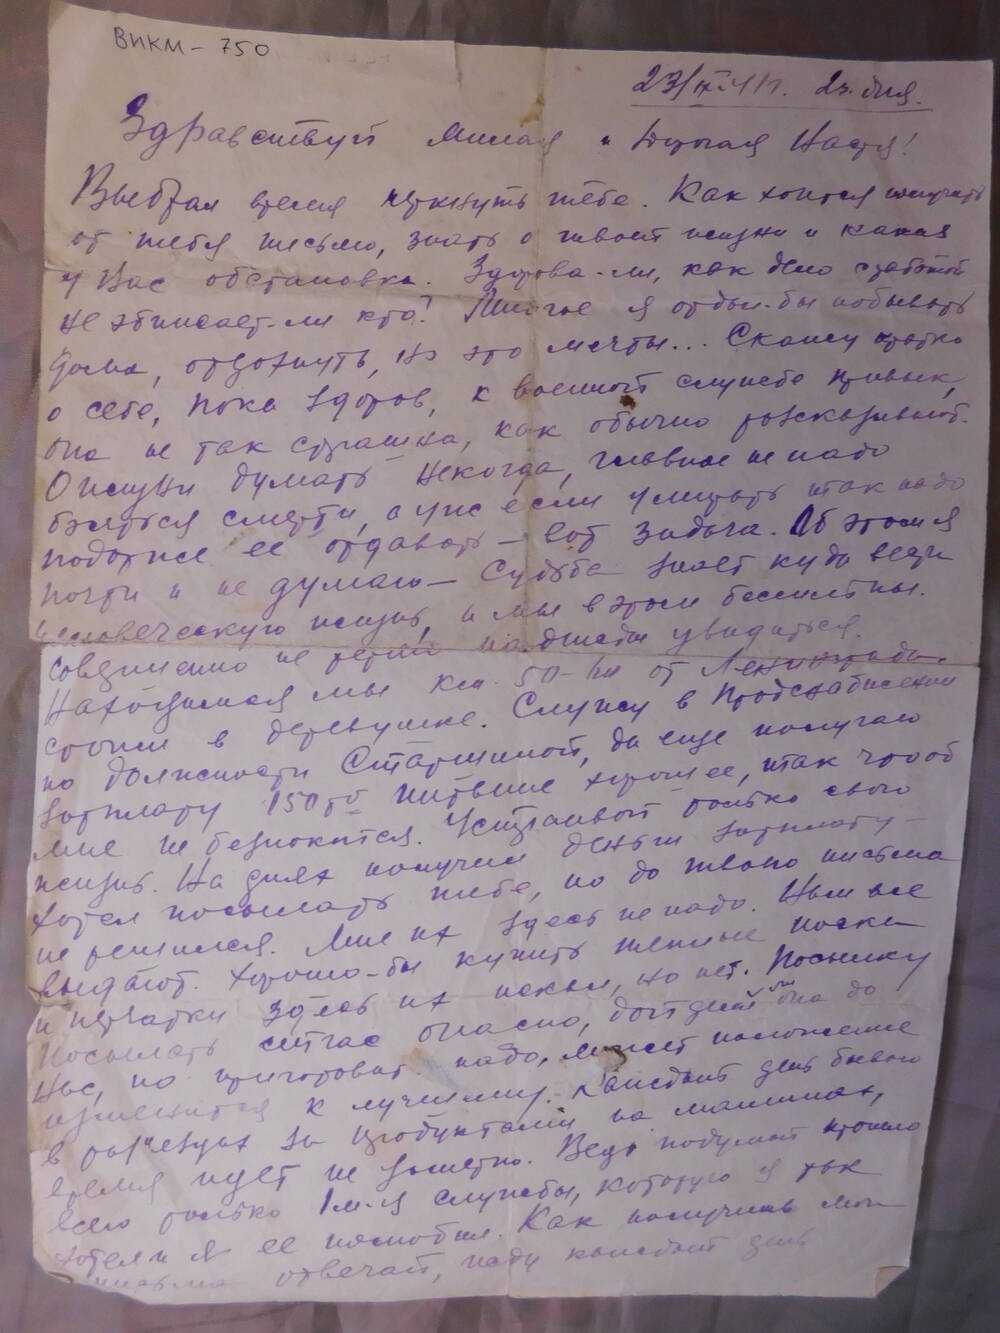 ВИКМ - 750
23/IX-41г. 2ч. дня.
Здравствуй милая и дорогая Настя!
Выбрал время черкнуть тебе. Как хочется получить
от тебя письмо, знать о твоей жизни и какая
у Вас обстановка. Здорова-ли, как дело с работой
не обижает-ли кто? Многое я отдал-бы побывать
дома, отдохнуть, но это мечты... Скажу кратко
о себе, пока здоров, к военной службе привык,
она не так страшна, как обычно рассказывают.
О жизни думать некогда, главное не надо
бояться смерти, а уж если умирать так надо
подороже ее отдавать - вот задача. Об этом я
почти и не думаю - Судьба знает куда ведет
человеческую жизнь, и мы в этом бессильны.
Совершенно не теряй надежды увидиться.
Находимся мы км. 50-ти от Ленинграда
стоим в деревушке. Служу в Продснабжении
по должности Старшиной, да еще получаю
зарплату 150р питание хорошее, так что об
мне не беспокойся. Устраивай только свою
жизнь. На днях получим деньги зарплату -
хотел посылать тебе, но до твоего письма
не решился. Мне их здесь не надо. Нам все
выдают. Хорошо-бы купить теплые носки
и перчатки здесь их искал, но нет. Посылку
посылать сейчас опасно, дойдет ли она до
нас, но приготовит. надо, может положение
изменится к лучшему. Каждый день бываю
в раз"ездах за продуктами на машинах,
время идет не заметно. Ведь подумай прошло
всего только 1 м-я службы, которую я так
хотел и я ее полюбил. Как получишь мои
письма отвечай, жду каждый день